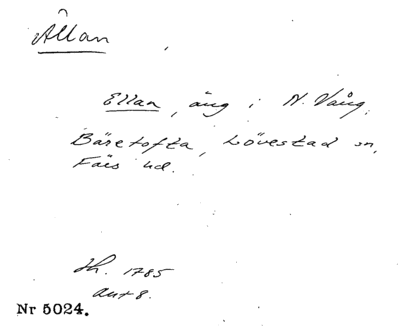 Ållan
Ellan, äng i N. Vång,
Bäretofta, Lövestad sn,
Färs hd.
Sk. 1785
akt 8.
Nr 5024.